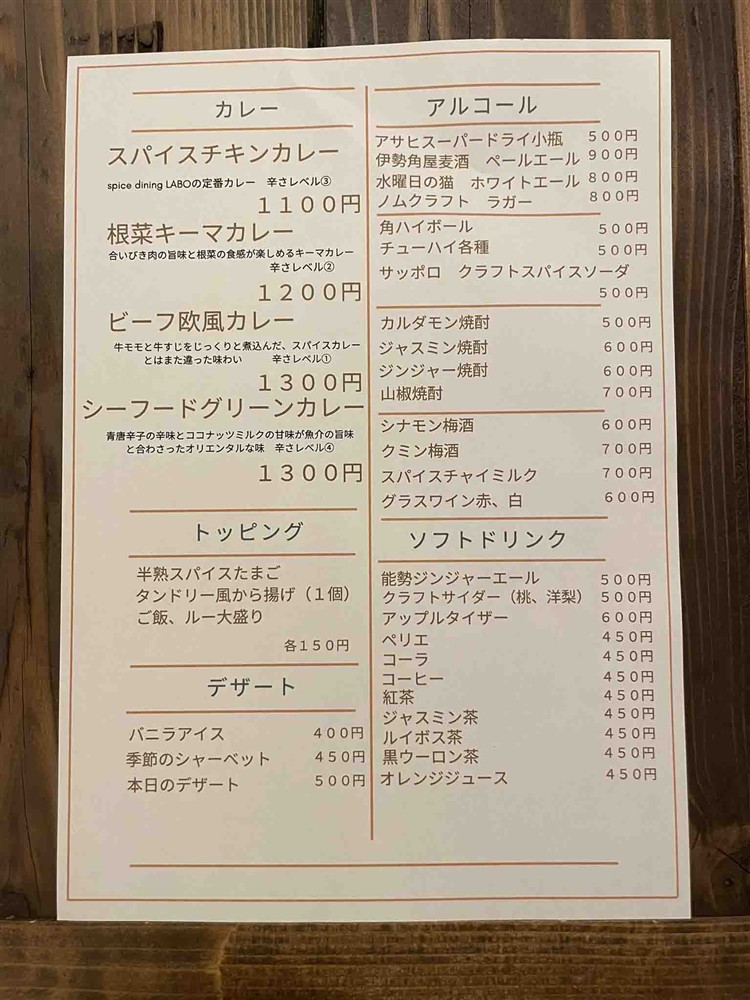 カレー
スパイスチキンカレー
spice dining LABOの定番カレー　辛さレベル③
１１００円
根菜キーマカレー
合いびき肉の旨味と根菜の食感が楽しめるキーマカレー
辛さレベル②
１２００円
ビーフ欧風カレー
牛モモと牛すじをじっくりと煮込んだ、スパイスカレー
とはまた違った味わい　辛さレベル①
１３００円
シーフードグリーンカレー
青唐辛子の辛味とココナッツミルクの甘味が魚介の旨味
と合わさったオリエンタルな味　辛さレベル④
１３００円
トッピング
半熟スパイスたまご
タンドリー風から揚げ（１個）
ご飯、ルー大盛り
各１５０円
デザート
バニラアイス　４００円
季節のシャーベット　４５０円
本日のデザート　５００円
アルコール
アサヒスーパードライ小瓶　５００円
伊勢角屋麦酒　ペールエール　９００円
水曜日の猫　ホワイトエール　８００円
ノムクラフト　ラガー　８００円
角ハイボール　５００円
チューハイ各種　５００円
サッポロ　クラフトスパイスソーダ
５００円
カルダモン焼酎　５００円
ジャスミン焼酎　６００円
ジンジャー焼酎　６００円
山椒焼酎　７００円
シナモン梅酒　６００円
クミン梅酒　７００円
スパイスチャイミルク　７００円
グラスワイン赤、白　６００円
ソフトドリンク
能勢ジンジャーエール　５００円
クラフトサイダー（桃、洋梨）　５００円
アップルタイザー　６００円
ペリエ　４５０円
コーラ　４５０円
コーヒー　４５０円
紅茶　４５０円
ジャスミン茶　４５０円
ルイボス茶　４５０円
黒ウーロン茶　４５０円
オレンジジュース　４５０円